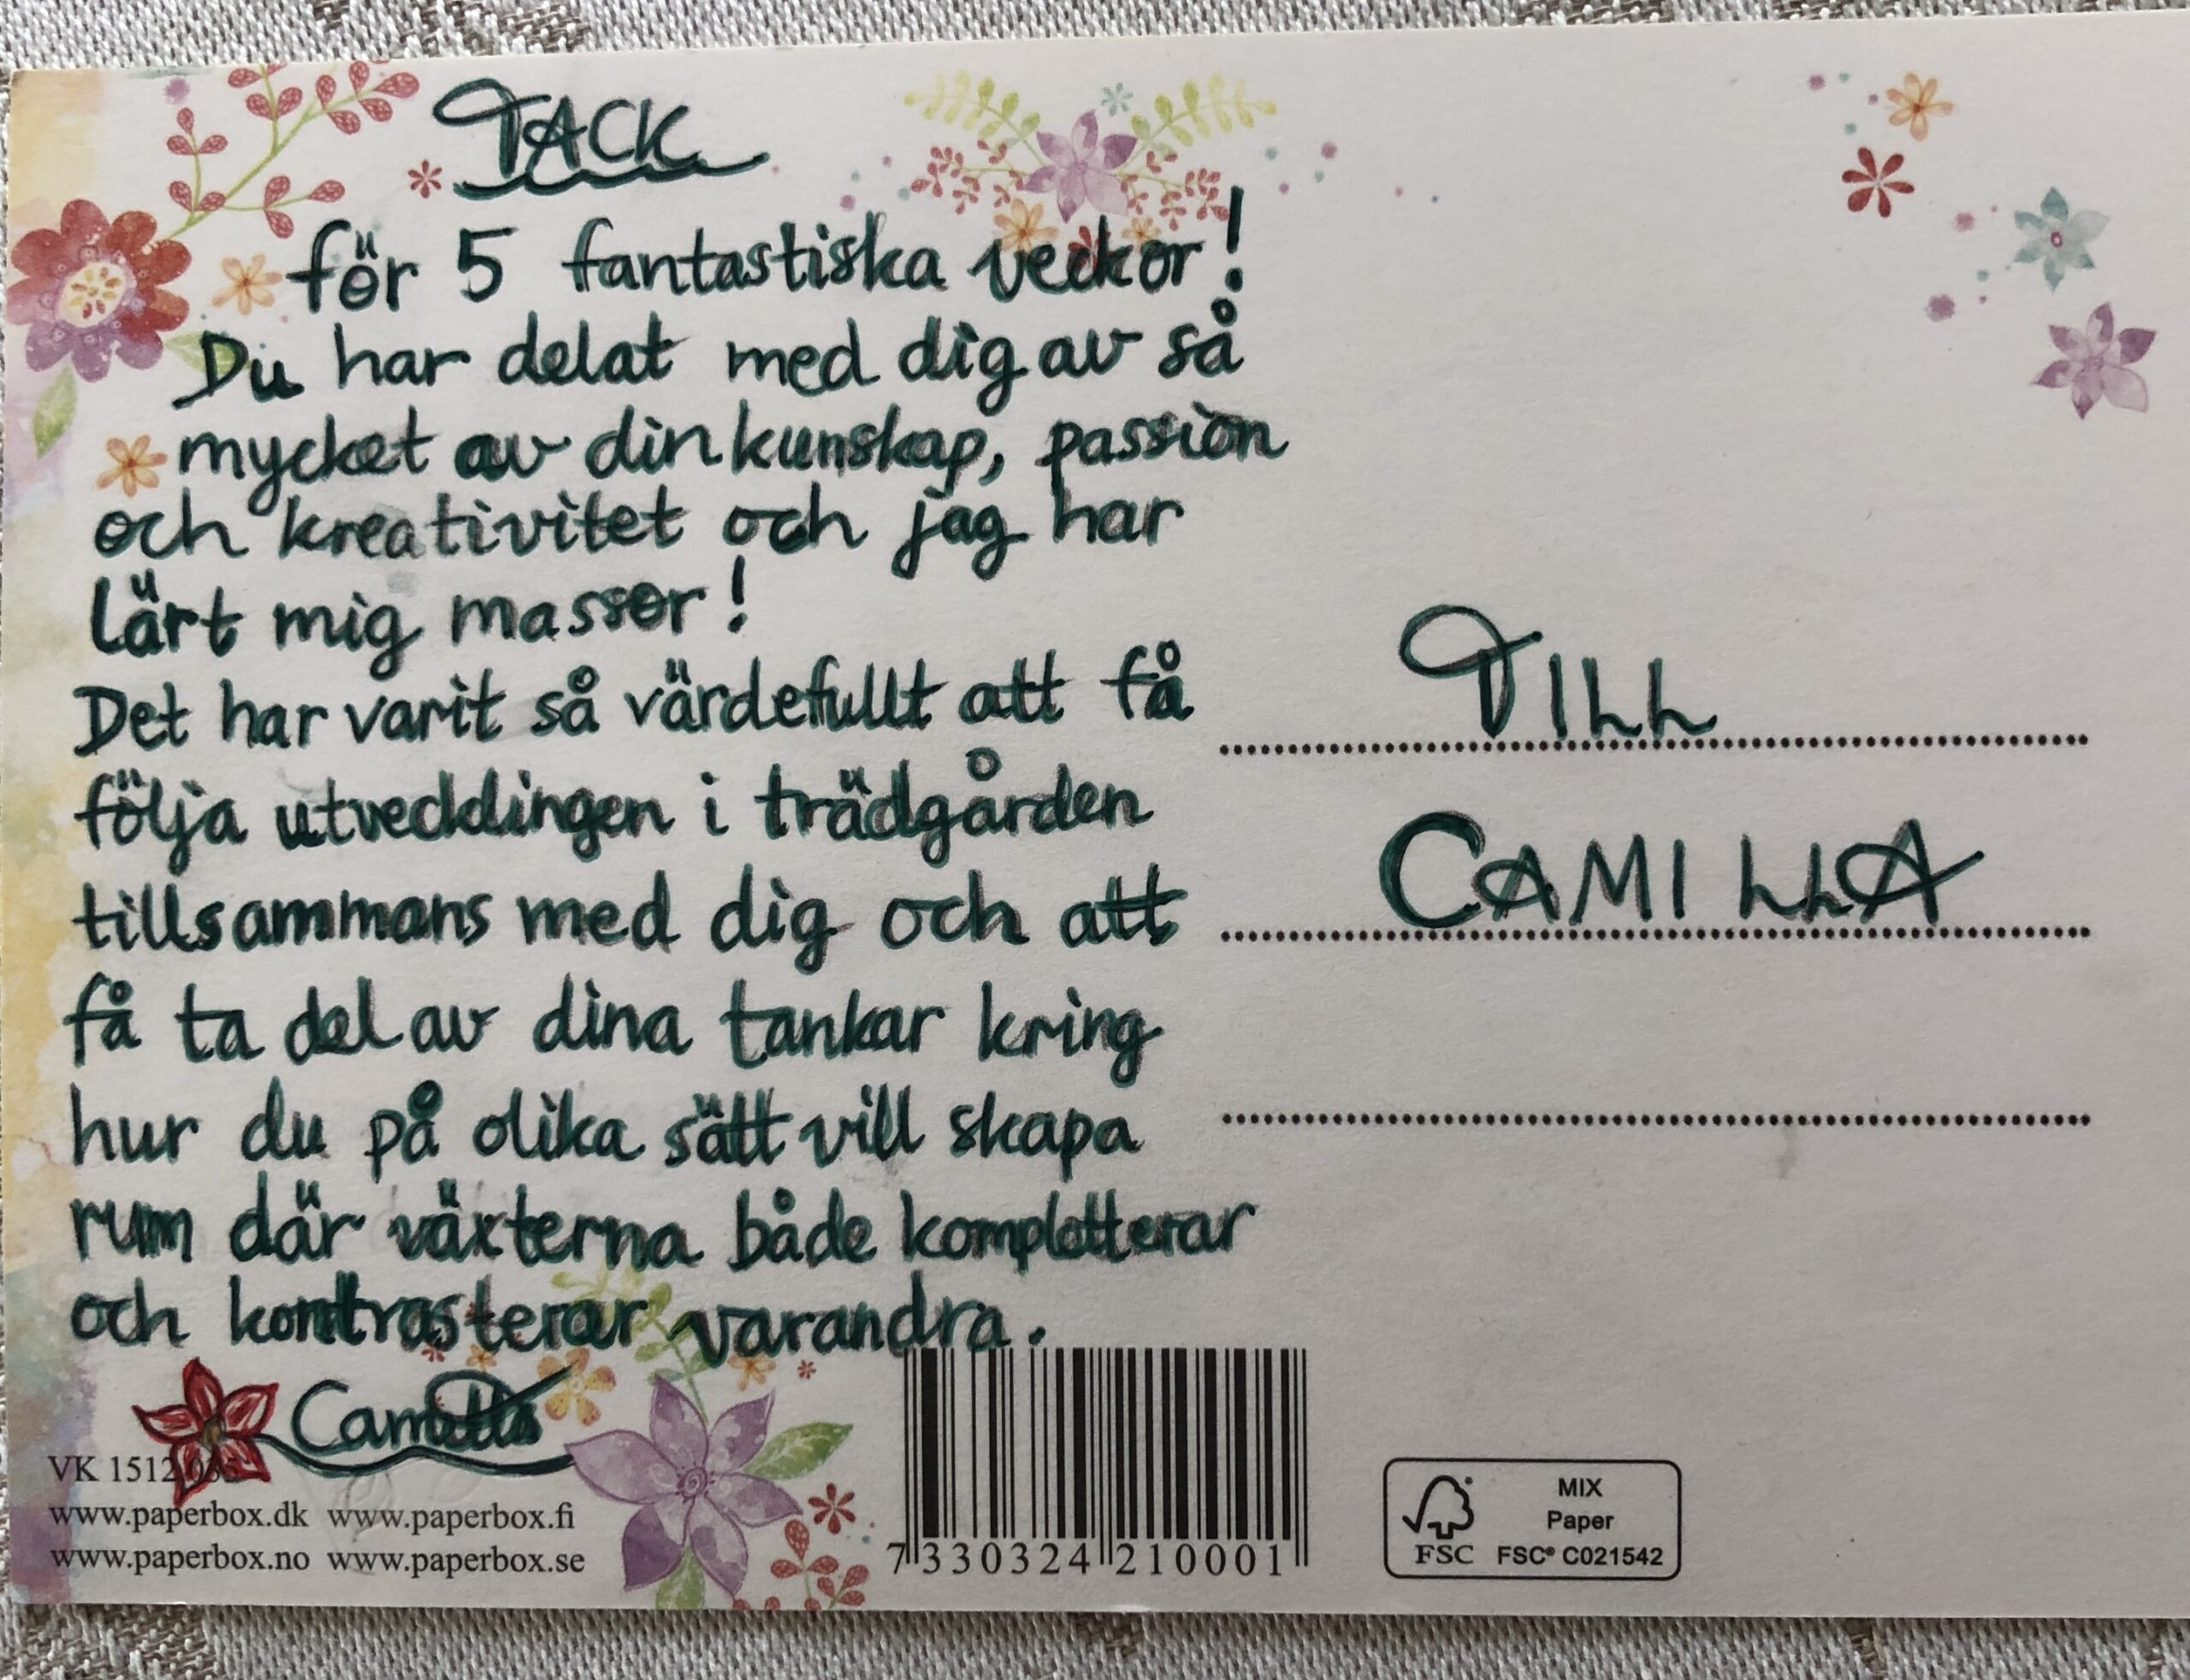 TACK
för 5 fantastiska veckor!
Du har delat med dig av så
mycket av din kunskap, passion
och kreativitet och jag har
lärt mig massor!
Det har varit så värdefullt att få
följa utvecklingen i trädgården
tillsammans med dig och att
få ta del av dina tankar kring
hur du på olika sätt vill skapa
rum där växterna både kompletterar
och kontrasterar varandra.
Camilla
TILL
CAMILLA
VK 1512 035
www.paperbox.dk www.paperbox.fi
www.paperbox.no www.paperbox.se
7 330324 210001
MIX
Paper
FSC FSC® C021542